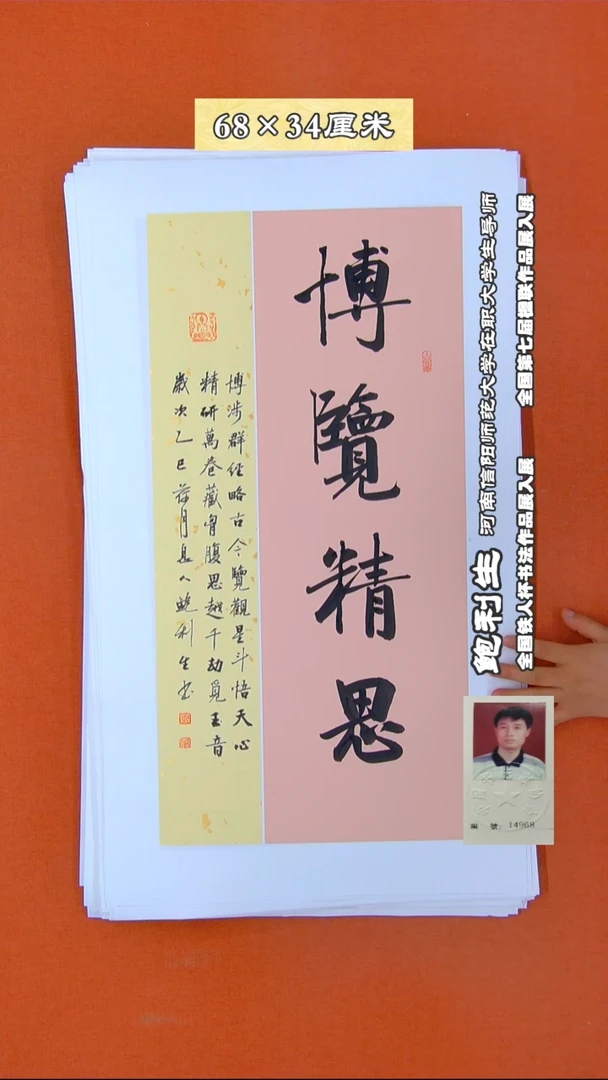 68×34厘米
博覽精思
博涉群經略古今覽觀星斗悟天心
精研萬卷藏胷腹思越千劫覓玉音
歲次乙巳荷月息人鮑利生書
鲍利生 河南信阳师范大学在职大学生导师
全国第七届楹联作品展入展
全国铁人杯书法作品展入展
編 號: 14968